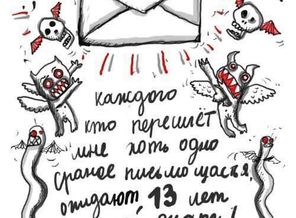 каждого
кто перешлёт
мне хоть одно
сраное письмо щастья,
ожидают 13 лет